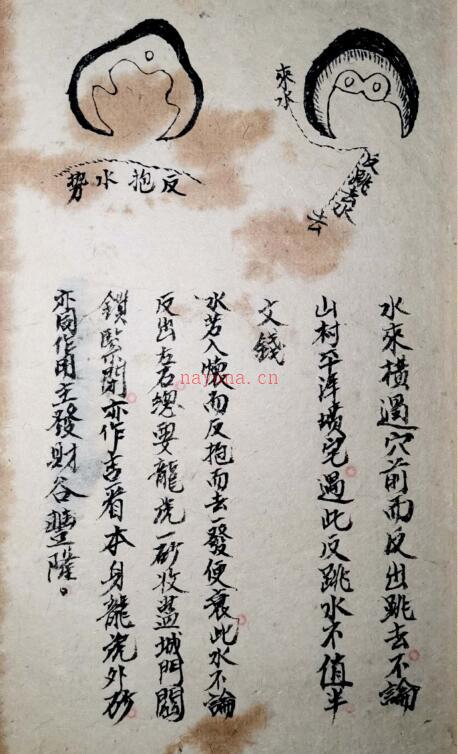 來水
反跳水
去
反抱水势
水來橫過穴前而反出跳去不論
山村平洋墳宅遇此反跳水不值半
文錢
水若入懷而反抱而去一發便衰此水不論
反出左右總要龍虎一砂收蓋城門關
鎖緊閉亦作吉看本身龍虎外砂
亦同作用主發財谷豐隆。
nayona.cn